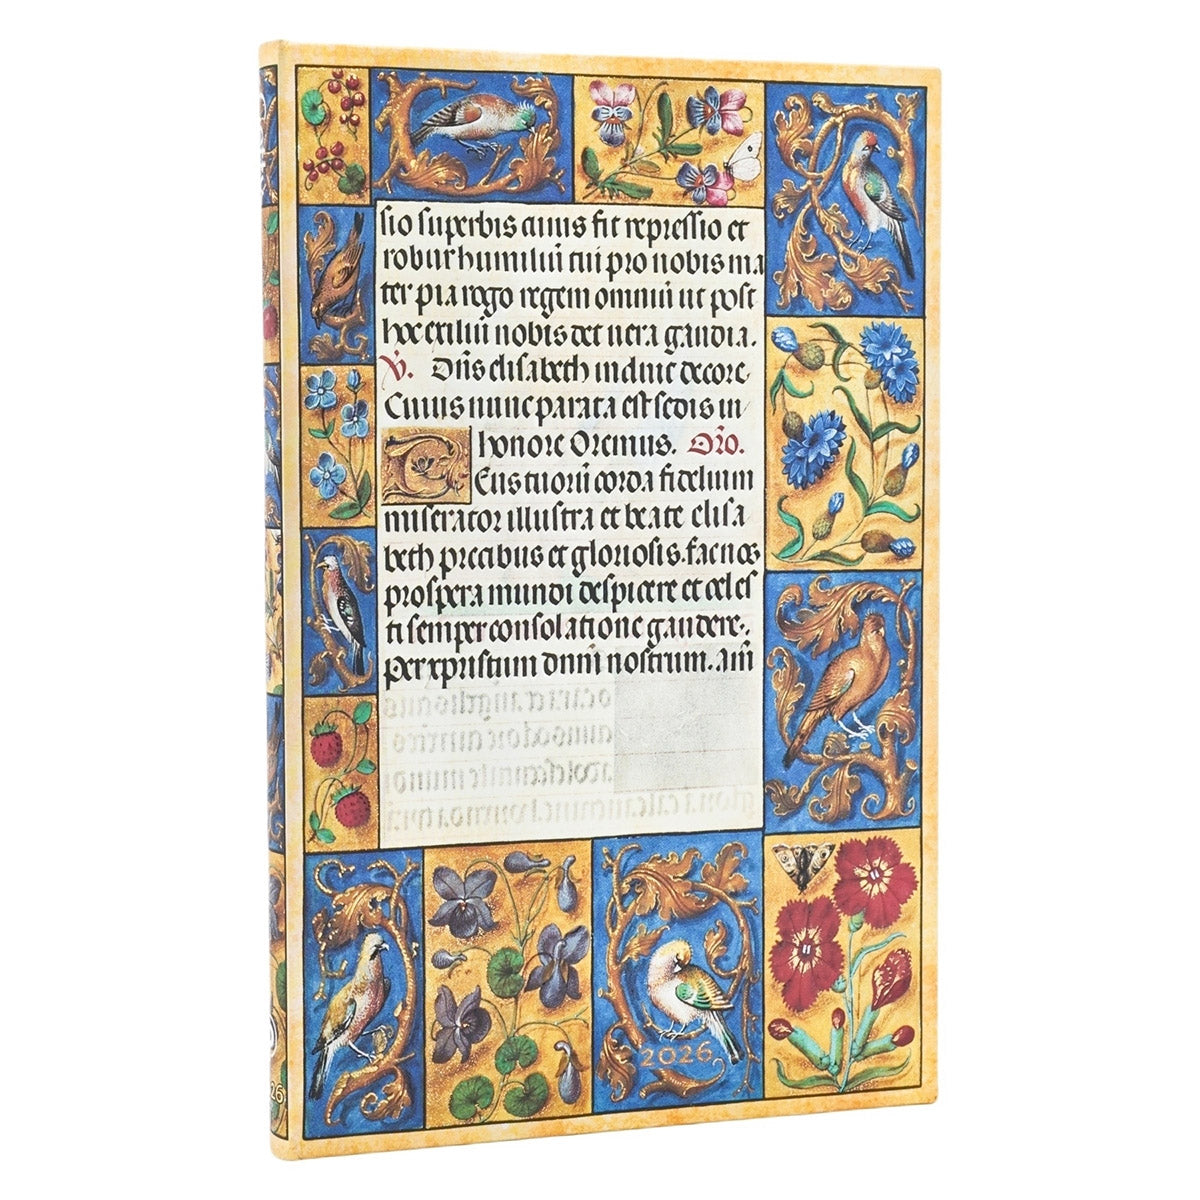 sio superbis cuius fit repressio et
robur humiliū tui pro nobis ma
ter pia rogo regem omniū ut post
hoc exiliū nobis det uera gaudia.
V̄. Diffusa elisabeth induit decore
Cuius nunc parata est sedis in
honore Oremus. Orō.
Eus tuorū corda fidelium
miserator illustra et beate elisa
beth precibus et gloriosis. fac nos
prospera mundi despicere et celes
ti semper consolatione gaudere.
Per xpistum dnm̄ nostrum. am̄
2026
26